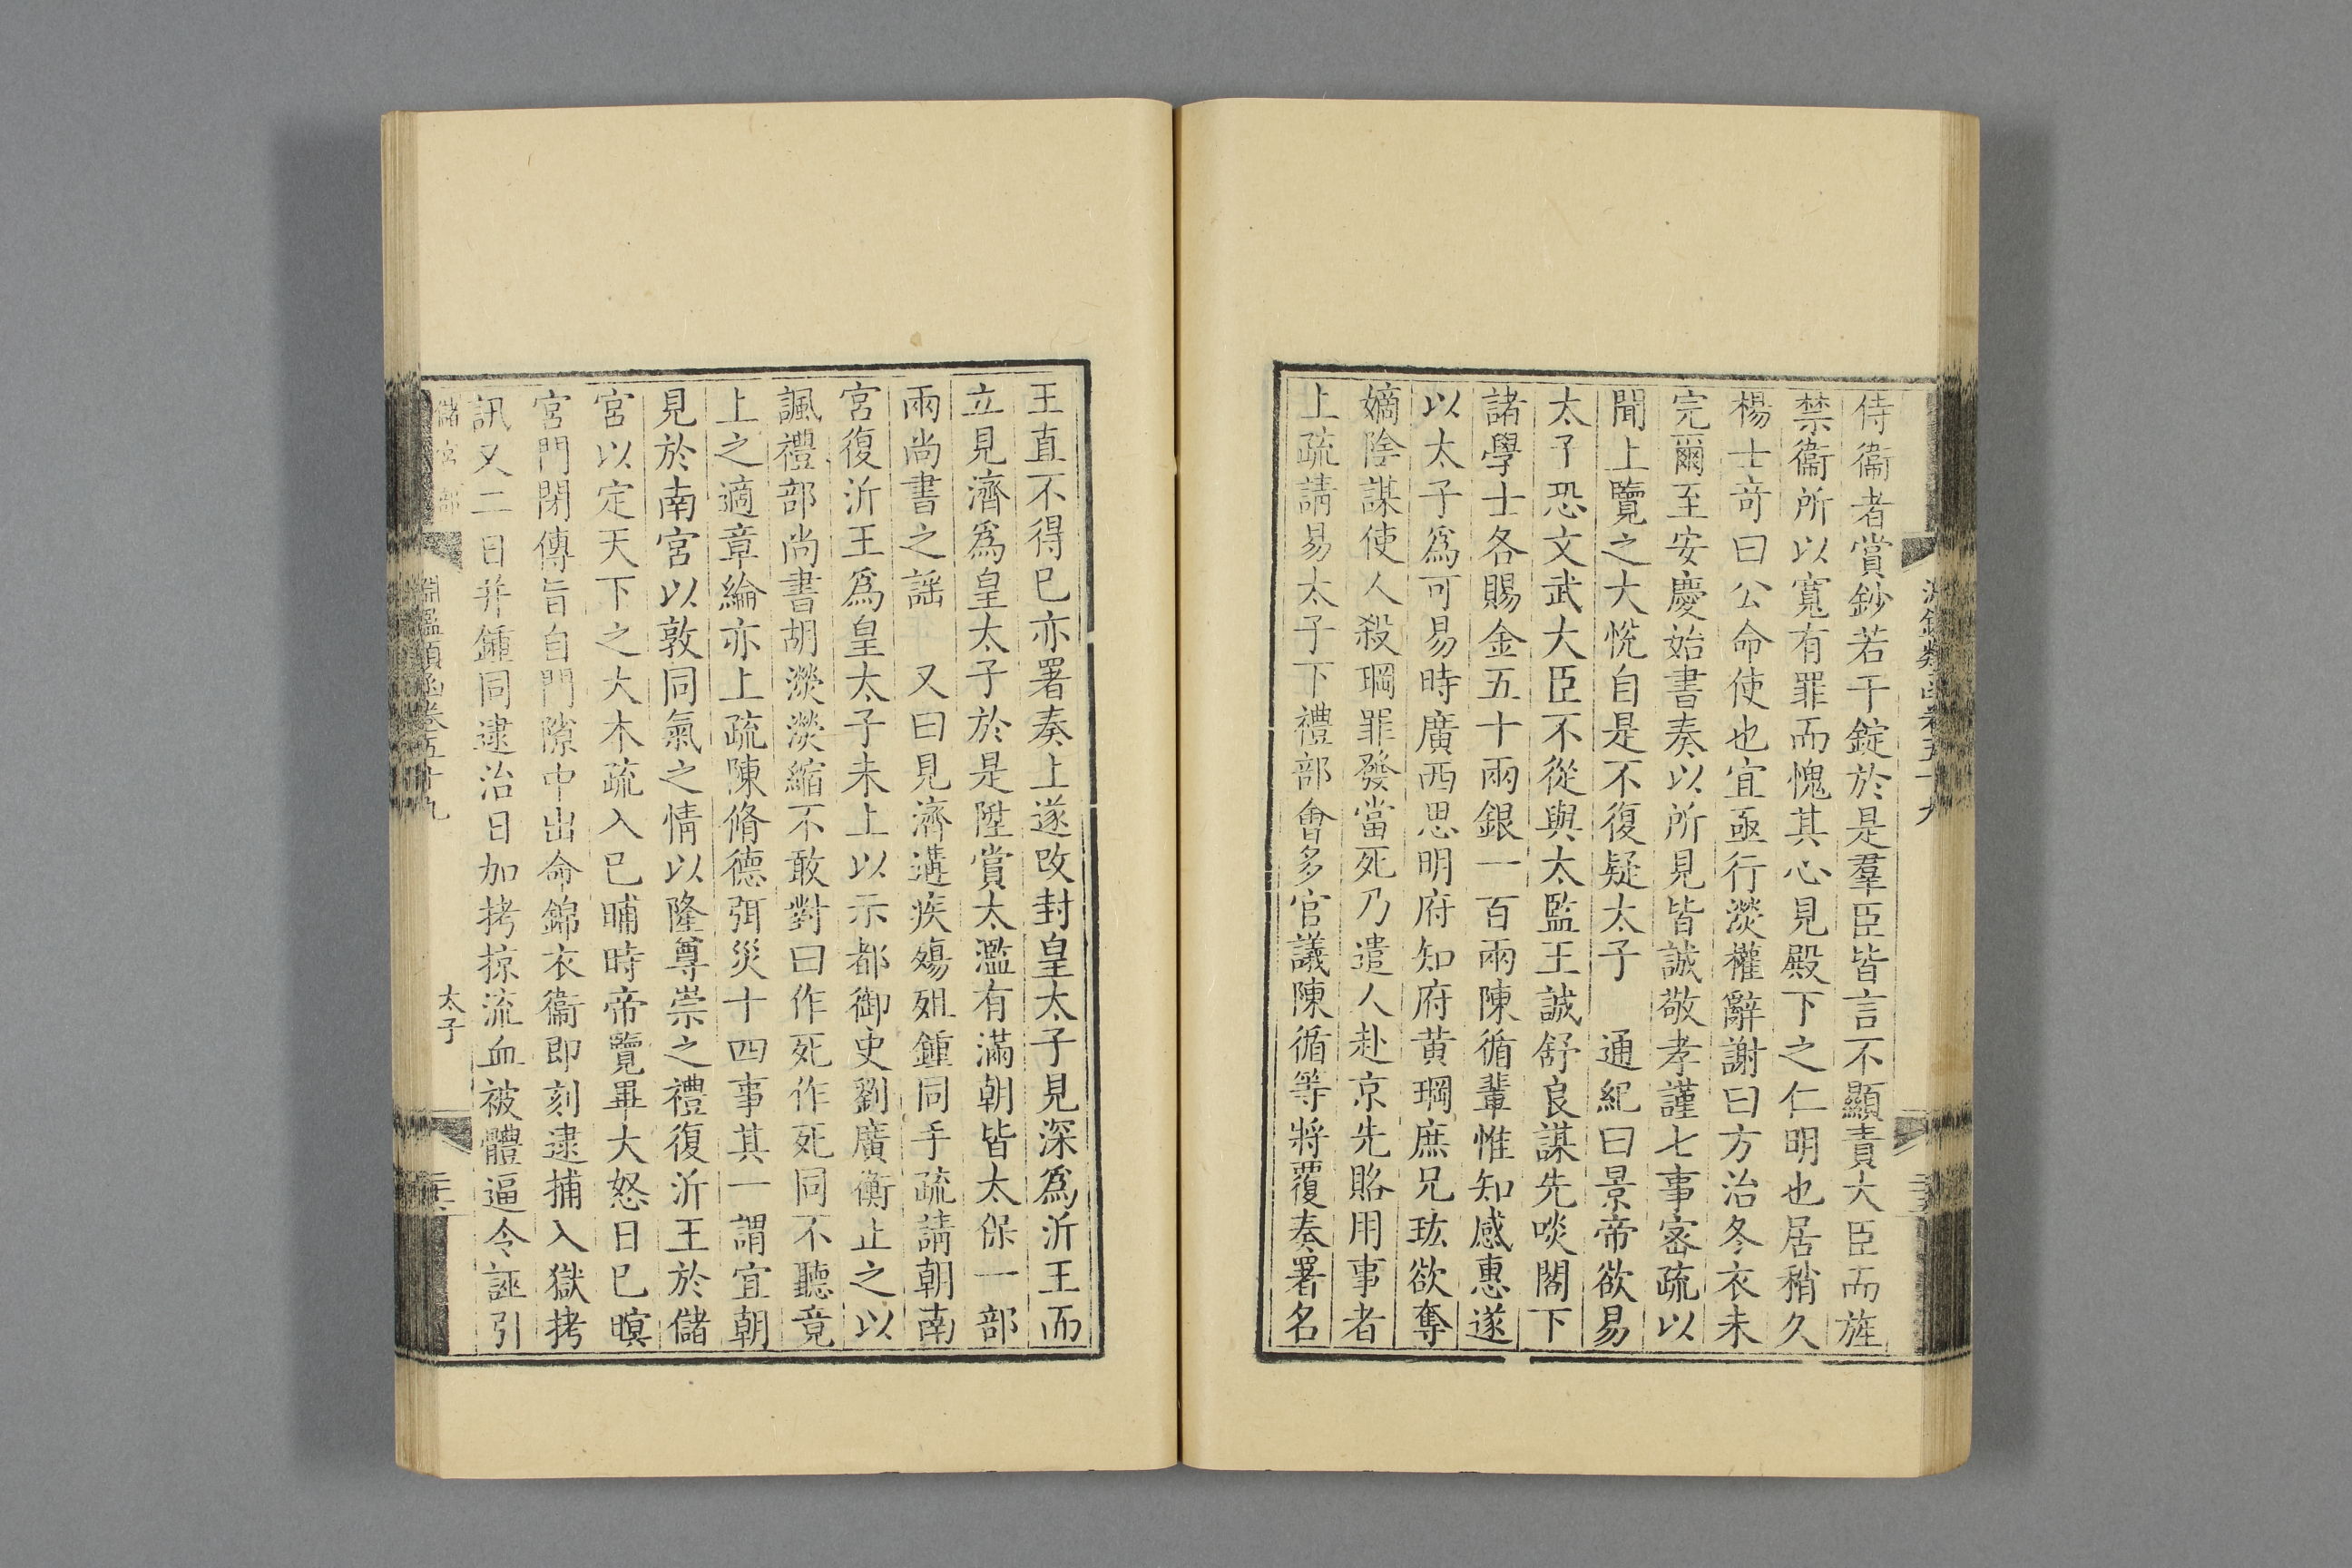 侍衞者賞鈔若干錠於是羣臣皆言不顯責大臣而旌
禁衞所以寬有罪而愧其心見殿下之仁明也居稍久
楊士竒曰公命使也宜亟行濙權辭謝曰方治冬衣未
完爾至安慶始書奏以所見皆誠敬孝謹七事密疏以
聞上覽之大悅自是不復疑太子　通紀曰景帝欲易
太子恐文武大臣不從與太監王誠舒良謀先啖閣下
諸學士各賜金五十兩銀一百兩陳循輩惟知感惠遂
以太子爲可易時廣西思明府知府黄㻞庶兄玹欲奪
嫡陰謀使人殺㻞罪發當死乃遣人赴京先賂用事者
上疏請易太子下禮部會多官議陳循等將覆奏署名
王直不得巳亦署奏上遂改封皇太子見深爲沂王而
立見濟爲皇太子於是陞賞太濫有滿朝皆太保一部
兩尚書之謡　又曰見濟遘疾殤殂鍾同手疏請朝南
宮復沂王爲皇太子未上以示都御史劉廣衡止之以
諷禮部尚書胡濙濙縮不敢對曰作死作死同不聽竟
上之適章綸亦上疏陳脩德弭災十四事其一謂宜朝
見於南宮以敦同氣之情以隆尊崇之禮復沂王於儲
宮以定天下之大本疏入巳晡時帝覽畢大怒日巳暝
宮門閉傳旨自門隙中出命錦衣衞即刻逮捕入獄拷
訊又二日并鍾同逮治日加拷掠流血被體逼令誣引
儲宮部
淵鑑類函卷五十九
太子